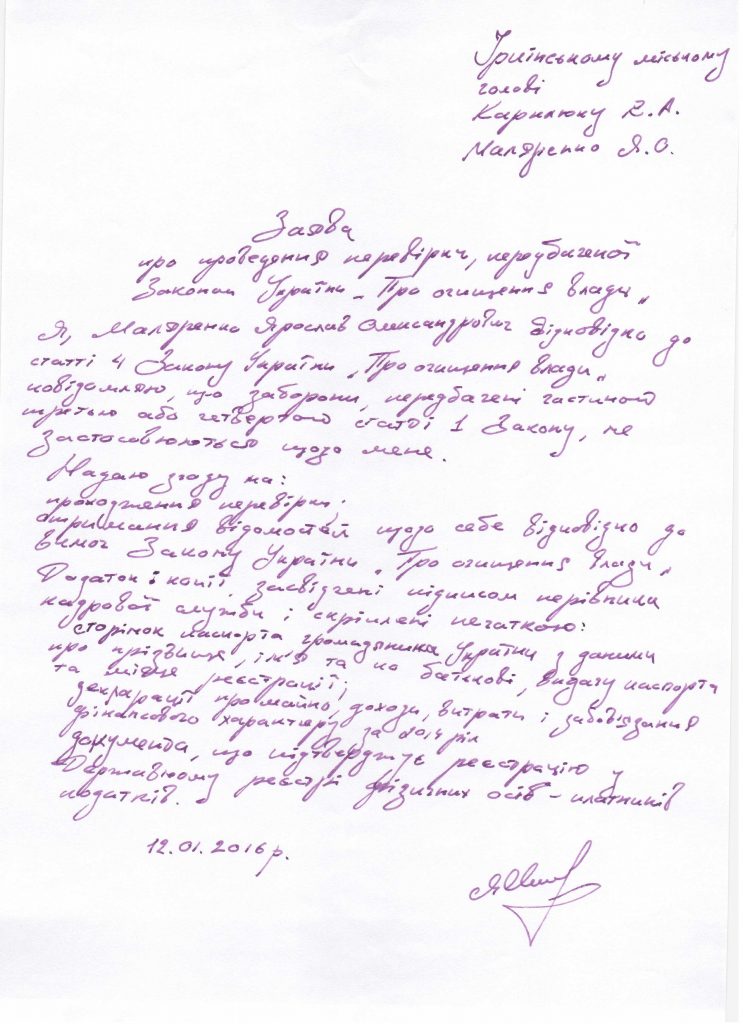 Ірпінському міському
голові
Карплюку В.А.
Маляренко Я.О.
Заява
про проведення перевірки, передбаченої
Законом України „Про очищення влади„
Я, Маляренко Ярослав Олександрович відповідно до
статті 4 Закону України „Про очищення влади„
повідомляю, що заборони, передбачені частиною
третьою або четвертою статті 1 Закону, не
застосовюються щодо мене.
Надаю згоду на:
проходження перевірки;
отримання відомостей щодо себе відповідно до
вимог Закону України „Про очищення влади„
Додаток: копії, засвідчені підписом керівника
кадрової служби і скріплені печаткою:
сторінок паспорта громадянина України з даними
про прізвище, ім'я та по батькові, видачу паспорта
та місце реєстрації;
декларації про майно, доходи, витрати і забов'язання
фінансового характеру за 2014 рік
документа, що підтверджує реєстрацію у
Державному реєстрі фізичних осіб – платників
податків.
12.01.2016 р.